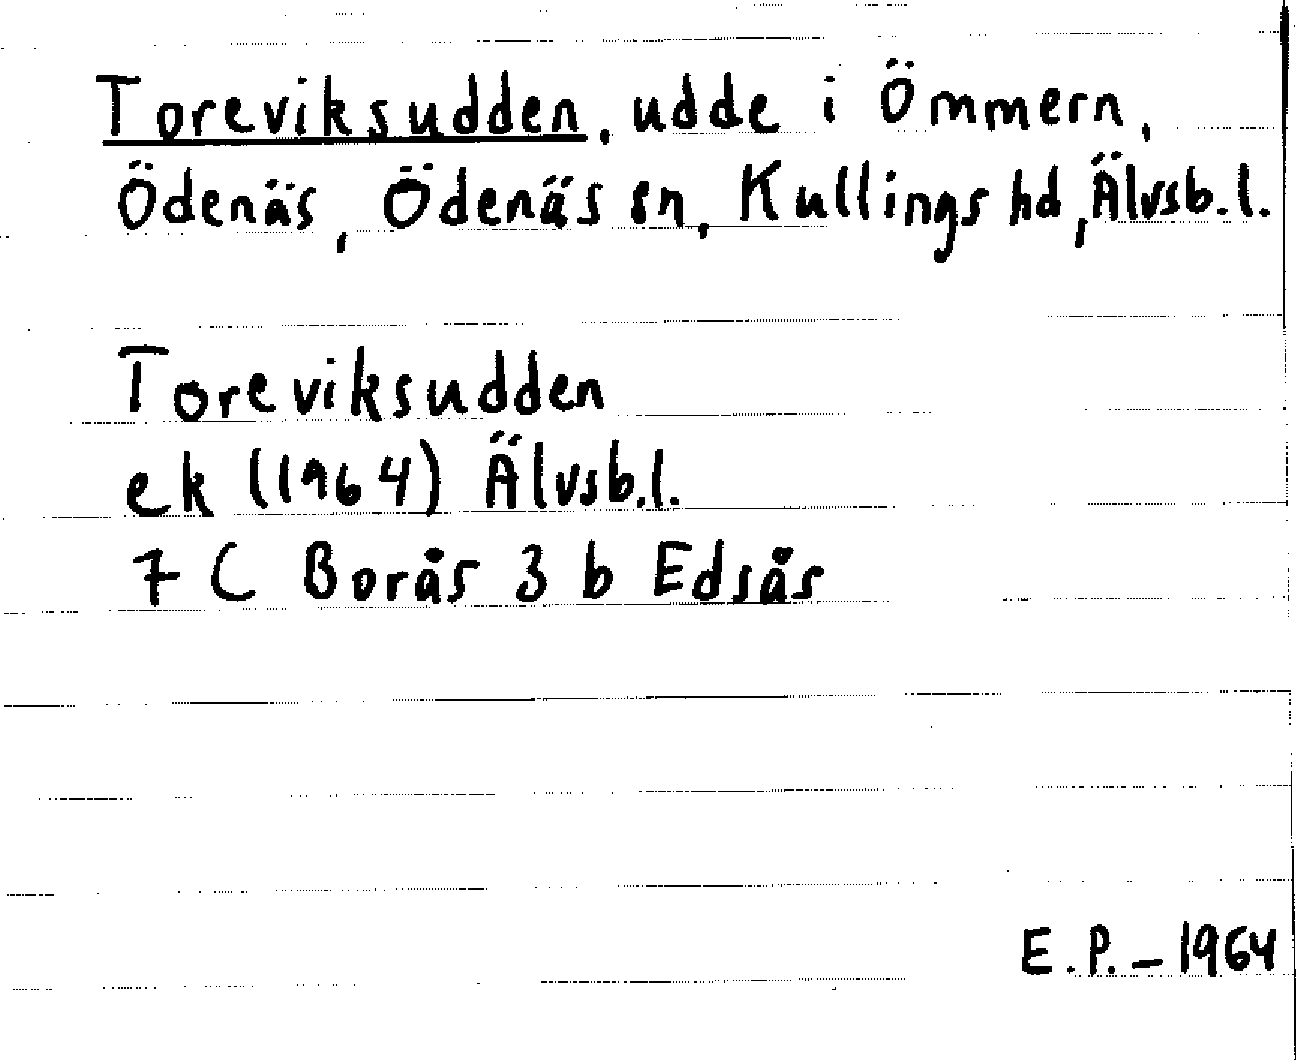 Toreviksudden, udde i Ömmern,
Ödenäs, Ödenäs sn, Kullings hd, Älvsb.l.
Toreviksudden
ek (1964) Älvsb.l.
7 C Borås 3 b Edsås
E.P. – 1964